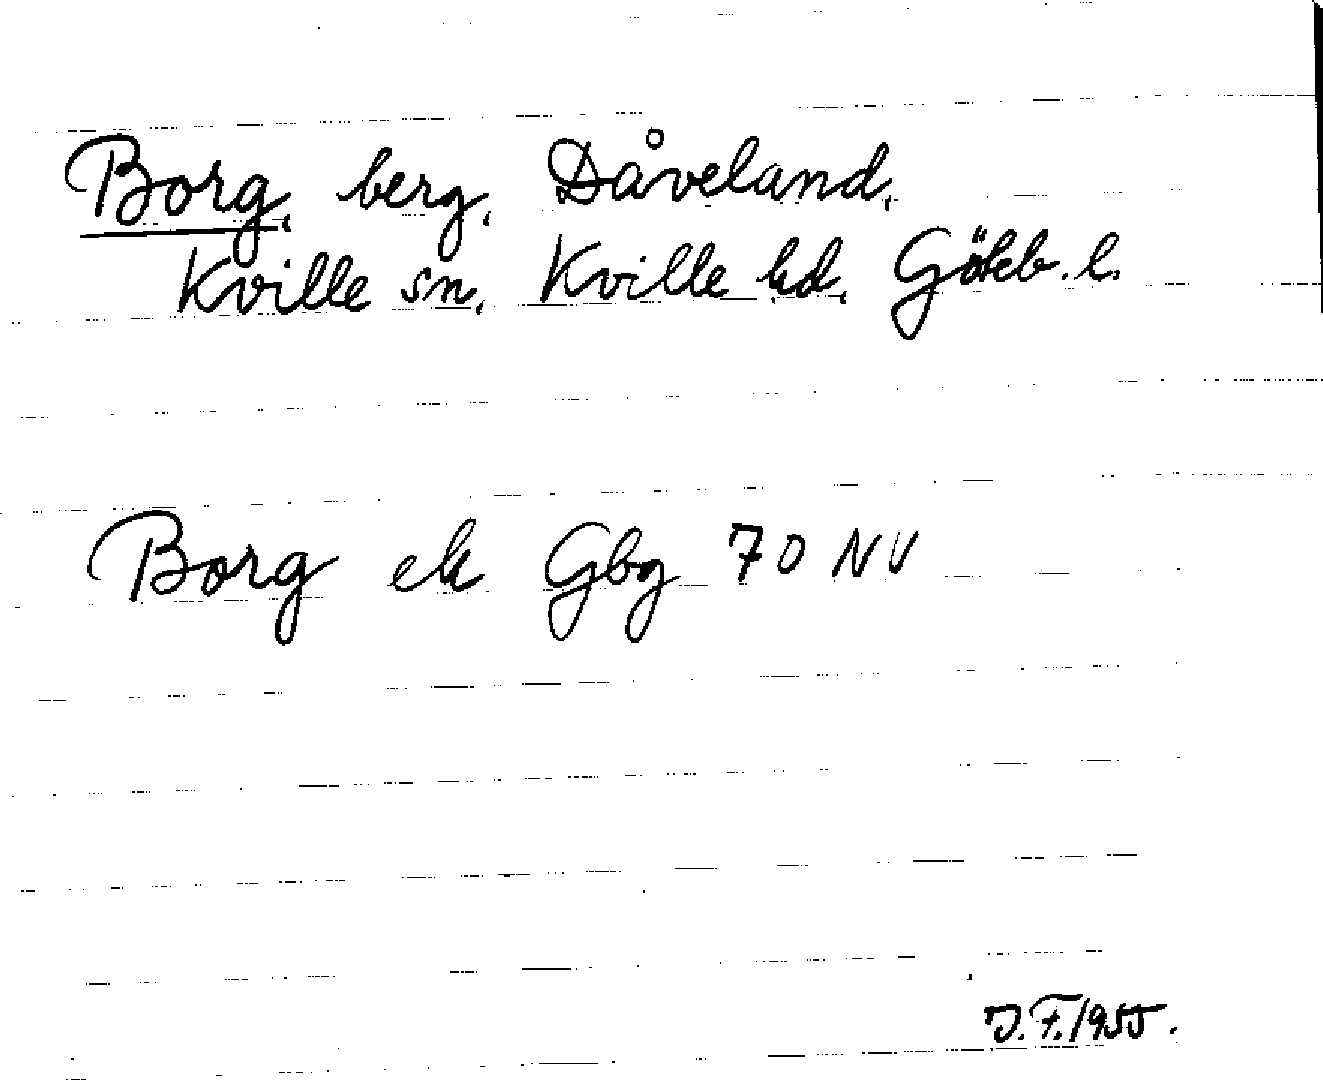 Borg, berg, Dåveland,
Kville sn, Kville hd, Göteb. l.
Borg ek Gbg 70 NV
J.F. 1955.